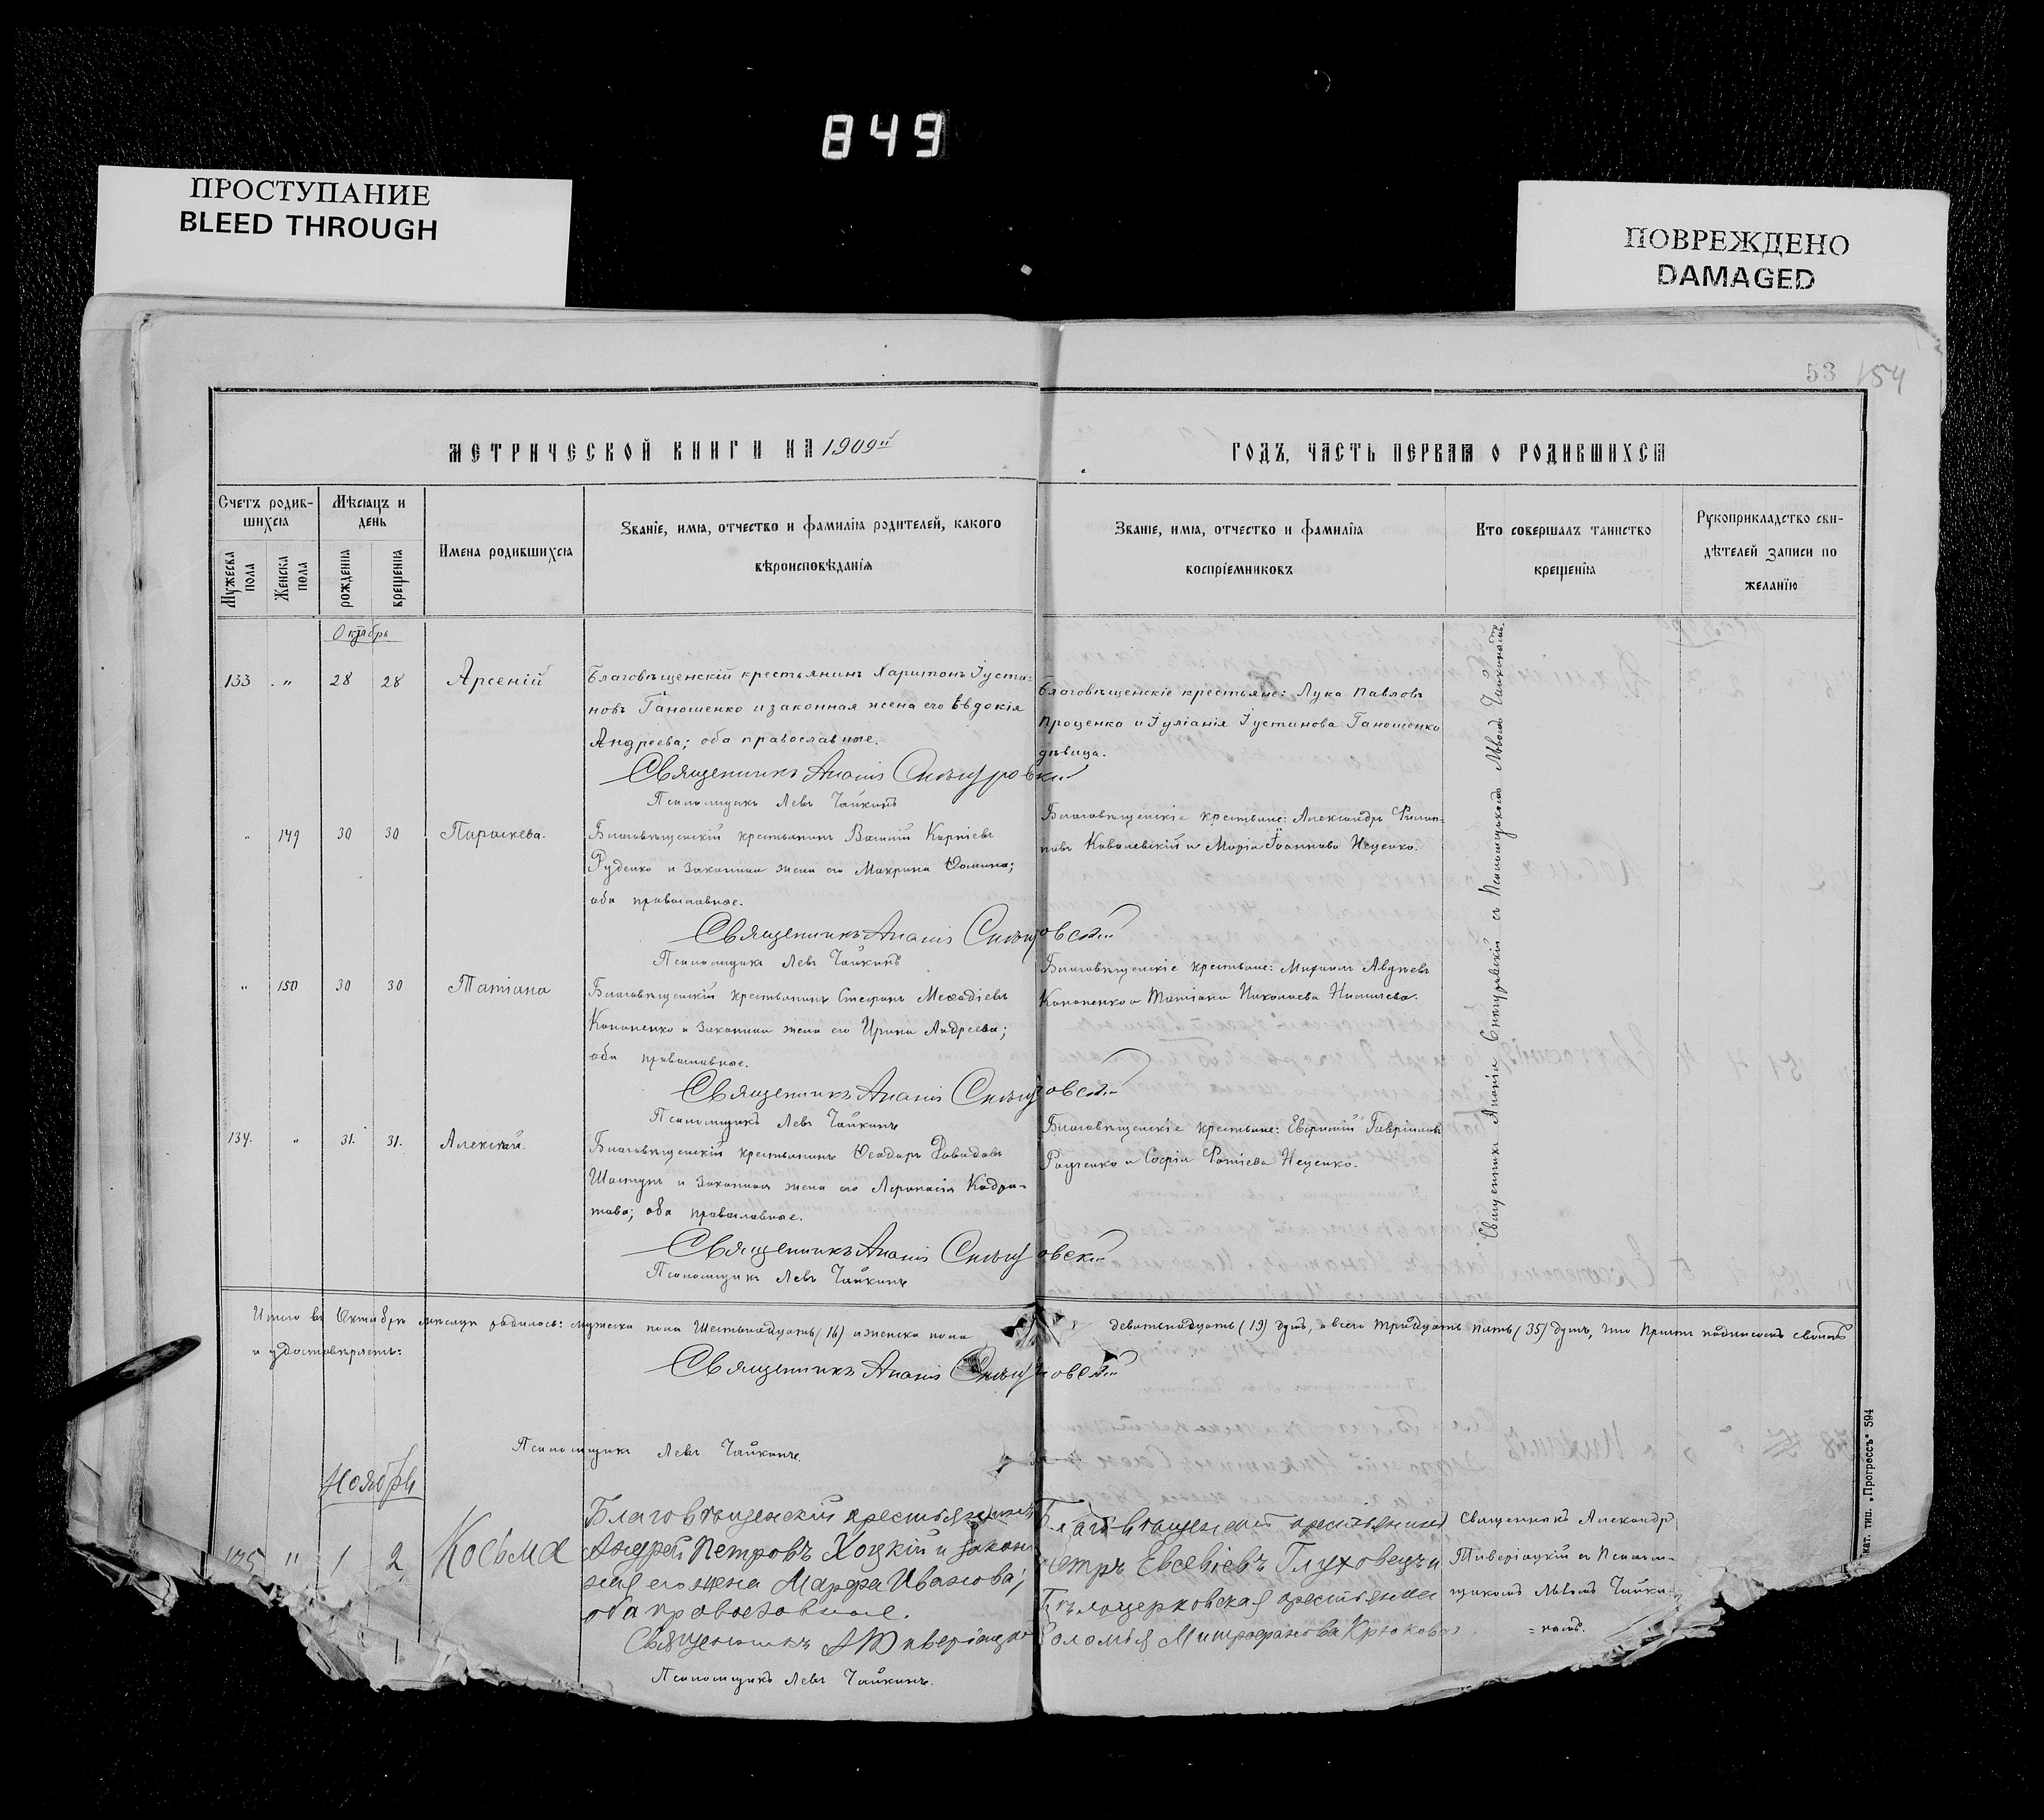 849
ПРОСТУПАНИЕ
BLEED THROUGH
ПОВРЕЖДЕНО
DAMAGED
53 154
МЕТРИЧЕСКОЙ КНИГИ НА 1909й
ГОДЪ, ЧАСТЬ ПЕРВАЯ О РОДИВШИХСЯ
Счетъ родив-
шихся
Мужеска пола
Женска пола
Мѣсяцъ и
день
рожденія
крещенія
Имена родившихся
Званіе, имя, отчество и фамилія родителей, какого
вѣроисповѣданія
Званіе, имя, отчество и фамилія
воспріемниковъ
Кто совершалъ таинство
крещенія
Рукоприкладство сви-
дѣтелей записи по
желанію
Октябрь
133 " 28 28 Арсеній
Благовѣщенскій крестьянинъ Харитонъ Іусти-
новъ Ганошенко и законная жена его Евдокія
Андреева; оба православные.
Священникъ Ананія Снѣгуровскій
Псаломщикъ Левъ Чайкинъ
Благовѣщенскіе крестьяне: Лука Павловъ
Проценко и Іуліанія Іустинова Ганошенко
дѣвица.
Священникъ Ананія Снѣгуровскій съ Псаломщикомъ Львомъ Чайкинымъ.
" 149 30 30 Параскева.
Благовѣщенскій крестьянинъ Василій Карпіевъ
Руденко и законная жена его Макрина Ѳомина;
оба православные.
Священникъ Ананія Снѣгуровскій
Псаломщикъ Левъ Чайкинъ
Благовѣщенскіе крестьяне: Александръ Филип-
повъ Ковалевскій и Марія Іоаннова Неценко.
" 150 30 30 Татіана
Благовѣщенскій крестьянинъ Стефанъ Меѳодіевъ
Кононенко и законная жена его Ирина Андреева;
оба православные.
Священникъ Ананія Снѣгуровскій
Псаломщикъ Левъ Чайкинъ
Благовѣщенскіе крестьяне: Михаилъ Авдѣевъ
Кононенко и Татіана Николаева
134. " 31. 31. Алексѣй.
Благовѣщенскій крестьянинъ Ѳеодоръ Давидовъ
и законная жена его Аѳанасія Кодра-
това; оба православные.
Священникъ Ананія Снѣгуровскій
Псаломщикъ Левъ Чайкинъ
Благовѣщенскіе крестьяне: Евфимій Гавріиловъ
Радченко и Софія Фотіева Неценко.
Итого въ Октябрѣ мѣсяцѣ родилось: мужеска пола Шестьнадцать (16) и женска пола
девятьнадцать (19) душъ, а всего тридцать пять (35) душъ, что Причтъ подписомъ своимъ
и удостовѣряетъ:
Священникъ Ананія Снѣгуровскій
Псаломщикъ Левъ Чайкинъ.
Ноябрь
135 " 1 2 Косьма
Благовѣщенскій крестьянинъ
Андрей Петровъ Хоцкій и закон
ная его жена Марфа Иванова;
оба православные.
Священникъ А Тиверіацкій
Псаломщикъ Левъ Чайкинъ.
Благовѣщенскій крестьянинъ
Петръ Евсевіевъ Глуховецъ и
Бѣлоцерковская крестьянка
Соломія Митрофанова Крюкова
Священникъ Александръ
Тиверіацкій съ Псалом-
щикомъ Львомъ Чайки-
=нымъ.
кат. тип. „Прогрессъ“ 594